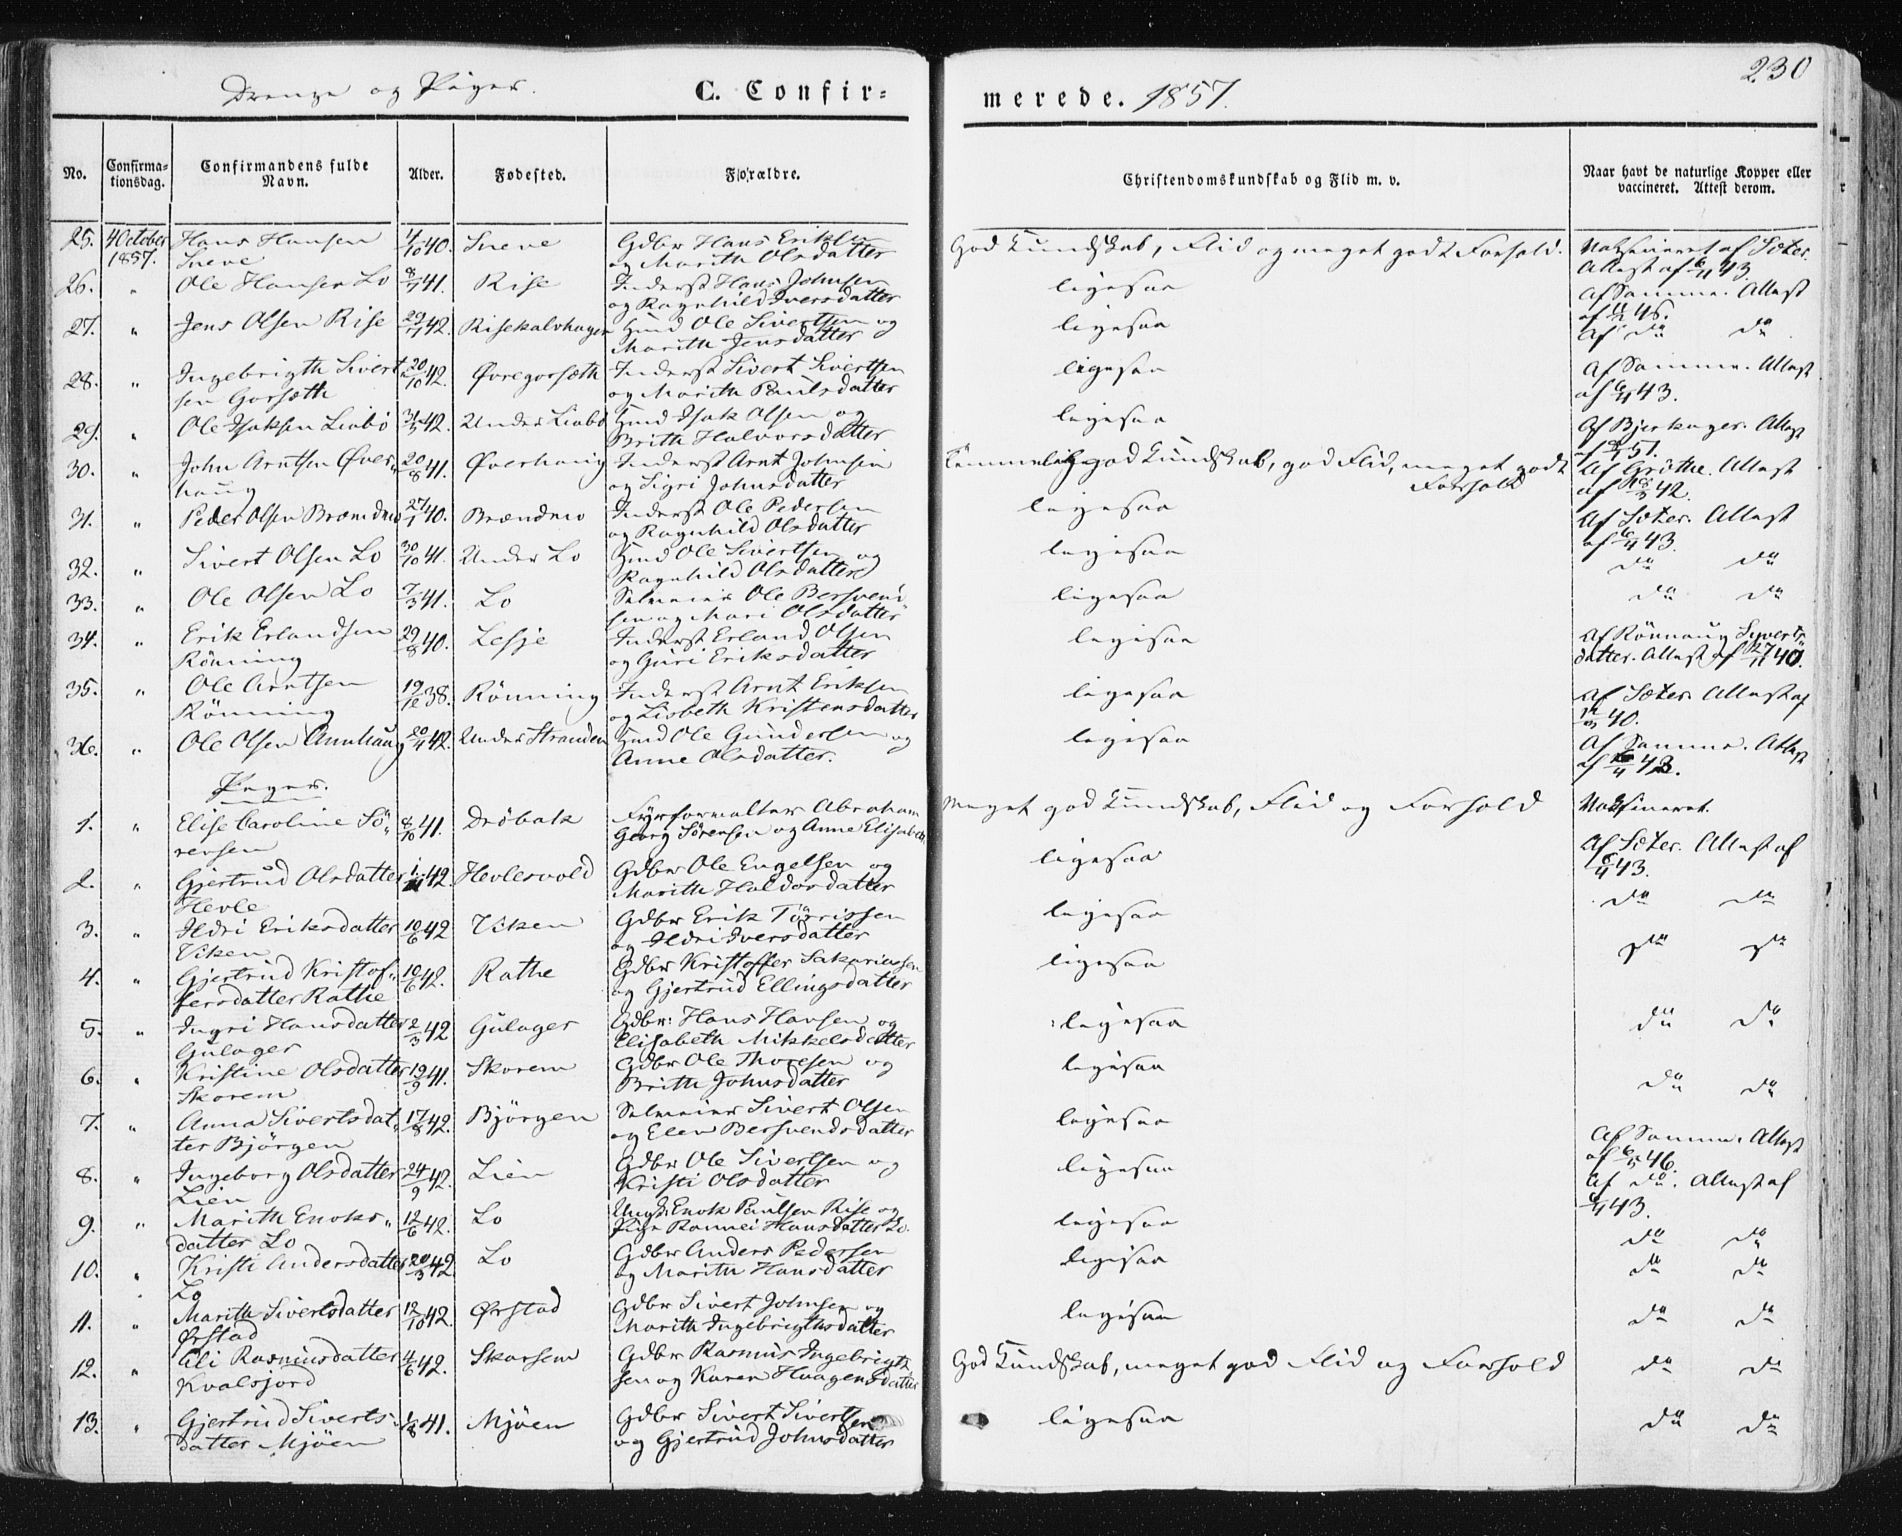 Drenge og Piger.
C. Confirmerede. 1857.
230
No.
Confirmationsdag.
Confirmandens fulde Navn.
Alder.
Fødested.
Forældre.
Christendomskundskab og Flid m. v.
Naar havt de naturlige Kopper eller vaccineret. Attest derom.
25. 4 October 1857. Hans Hansen Sneve 4/10 40. Sneve Gdbr Hans Eriksen og Marith Olsdatter God Kundskab, Flid og meget godt Forhold. Vakcineret af Sæter. Attest af 43.
26. " Ole Hansen Lo 41. Rise Inderst Hans Johnsen og Ragnhild Iversdatter ligesaa Af Samme. Attest af 46.
27. " Jens Olsen Rise 42. Risekalvhagen Hmd Ole Sivertsen og Marith Jensdatter ligesaa Af do do
28. " Ingebrigth Sivertsen Gorsæth 20/10 42. Øvregorsæth Inderst Sivert Sivertsen og Marith Paulsdatter ligesaa Af Samme. Attest af 43.
29. " Ole Isaksen Liabø 42. Under Liabø Hmd Isak Olsen og Brith Halvorsdatter ligesaa Af Bjerkager. Attest af 51.
30. " John Arntsen Øverhaug 20/8 41. Øverhaug Inderst Arnt Johnsen og Sigri Johnsdatter Temmelig god Kundskab, god Flid, meget godt Forhold Af Grøthe. Attest af 42.
31. " Peder Olsen Brændmo 27/1 40. Brændmo Inderst Ole Pedersen og Ragnhild Olsdatter ligesaa Af Sæter. Attest af 43.
32. " Sivert Olsen Lo 30/10 41. Under Lo Hmd Ole Sivertsen og Ragnhild Olsdatter ligesaa do do
33. " Ole Olsen Lo 7/3 41. Lo Selveier Ole Bersvendsen og Mari Olsdatter ligesaa do do
34. " Erik Erlandsen Rönning 29/8 40. Lesje Inderst Erland Olsen og Guri Eriksdatter ligesaa Af Rönnaug Syvertsdatter. Attest af 40.
35. " Ole Arntsen Rönning 19/12 38. Rönning Inderst Arnt Eriksen og Lisbeth Kristensdatter ligesaa Af Sæter Attest af 40.
36. " Ole Olsen Aunhaug 20/4 42. Under Stranden Hmd Ole Gundersen og Anne Olsdatter. ligesaa Af Samme. Attest af 43.
Piger.
1. " Elise Caroline Sörensen 8/10 41. Dröbak Fyrforvalter Abraham Georg Sörensen og Anne Elisabeth Meget god Kundskab, Flid og Forhold Vakcineret.
2. " Gjertrud Olsdatter Hevle 42. Hevlesvold Gdbr Ole Engelsen og Marith Haldorsdatter ligesaa Af Sæter. Attest af 43.
3. " Ildri Eriksdatter Viken 10/6 42 Viken Gdbr Erik Törrissen og Ildri Iversdatter ligesaa do do
4. " Gjertrud Kristoffersdatter Rathe 10/6 42. Rathe Gdbr Kristoffer Sakariassen og Gjertrud Ellingsdatter ligesaa do do
5. " Ingri Hansdatter Gulager 2/3 42 Gulager Gdbr: Hans Hansen og Elisabeth Mikkelsdatter ligesaa do do
6. " Kristine Olsdatter Skorem 19/9 41. Skorem Gdbr Ole Thoresen og Brith Johnsdatter ligesaa do do
7. " Anna Sivertsdatter Björgen 17/8 42. Bjørgen Selveier Sivert Olsen og Elen Bersvendsdatter ligesaa Af Samme. Attest af 46.
8. " Ingeborg Olsdatter Lien 24/9 42. Lien Gdbr Ole Sivertsen og Kristi Olsdatter ligesaa Af do. Attest af 43.
9. " Marith Enoksdatter Lo 12/6 42. Lo Ungk: Enok Paulsen Rise og Pige Rannei Hansdatter Lo. ligesaa do do
10. " Kristi Andersdatter Lo 20/3 42 Lo Gdbr Anders Pedersen og Marith Hansdatter ligesaa do do
11. " Marith Sivertsdatter Ørstad 12/10 42. Ørstad Gdbr Sivert Johnsen og Marith Ingebrigthsdatter ligesaa do do
12. " Ali Rasmusdatter Kvalsjord 4/6 42. Skorsem Gdbr Rasmus Ingebrigtsen og Karen Haagensdatter God Kundskab, meget god Flid og Forhold do do
13. " Gjertrud Sivertsdatter Mjöen 41. Mjöen Gdbr Sivert Sivertsen og Gjertrud Johnsdatter ligesaa do do